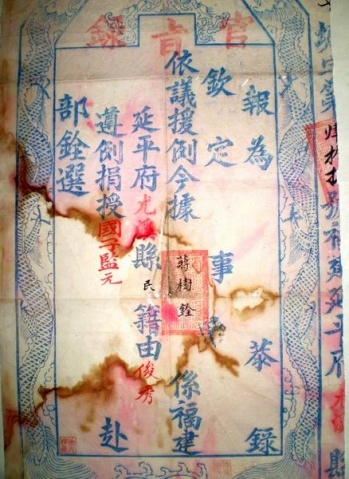 官音錄
報為 恭錄
欽定事
依議援例今據 蔣樹銓 係福建
延平府尤縣民籍由俊秀
遵例捐授國子監元
部銓選 赴
延平府
縣